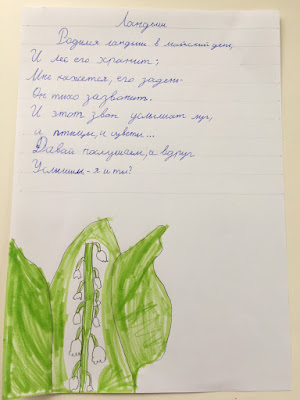 Ландыш
Родился ландыш в майский день,
И лес его хранит;
Мне кажется, его задень-
Он тихо зазвонит.
И этот звон услышат луг,
и птицы, и цветы...
Давай послушаем, а вдруг
Услышим - я и ты?